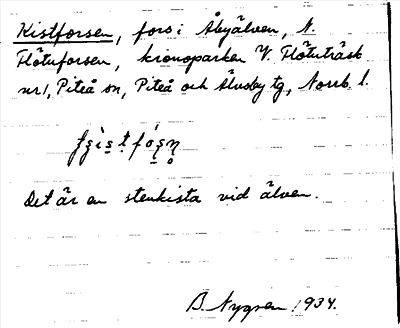 Kistforsen, fors i Åbyälven, N.
Flötuforsen, kronoparken V. Flötuträsk
nr 1, Piteå sn, Piteå och Älvsby tg, Norrb. l.
Det är en stenkista vid älven.
B. Nygren 1934.